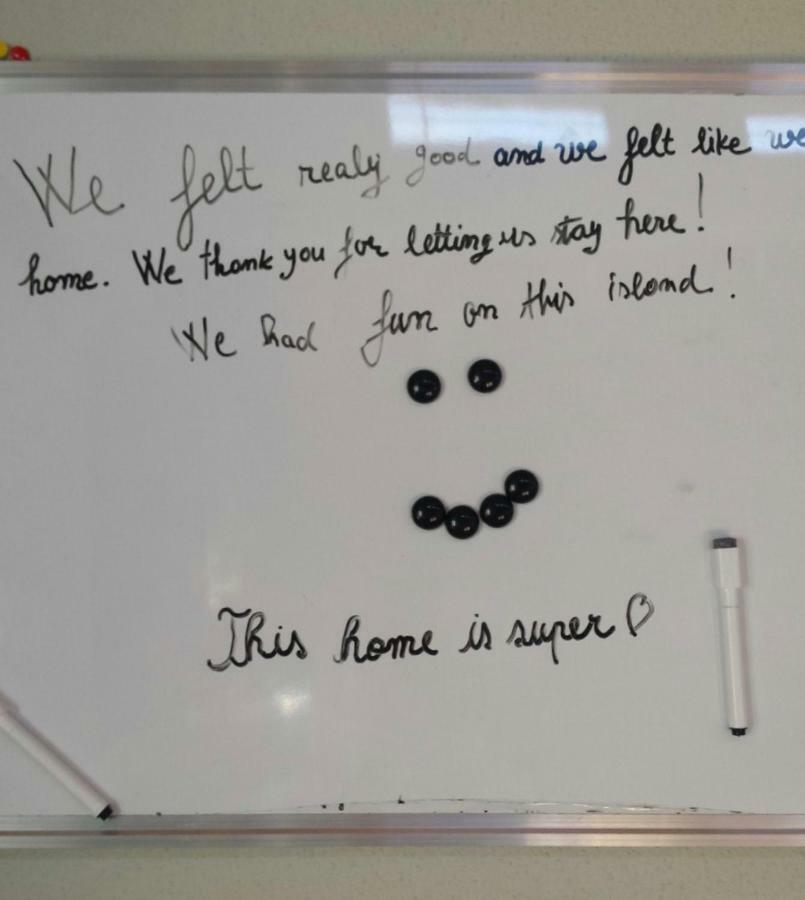 We felt realy good and we felt like we
home. We thank you for letting us stay here!
We had fun on this island!
This home is super ♡